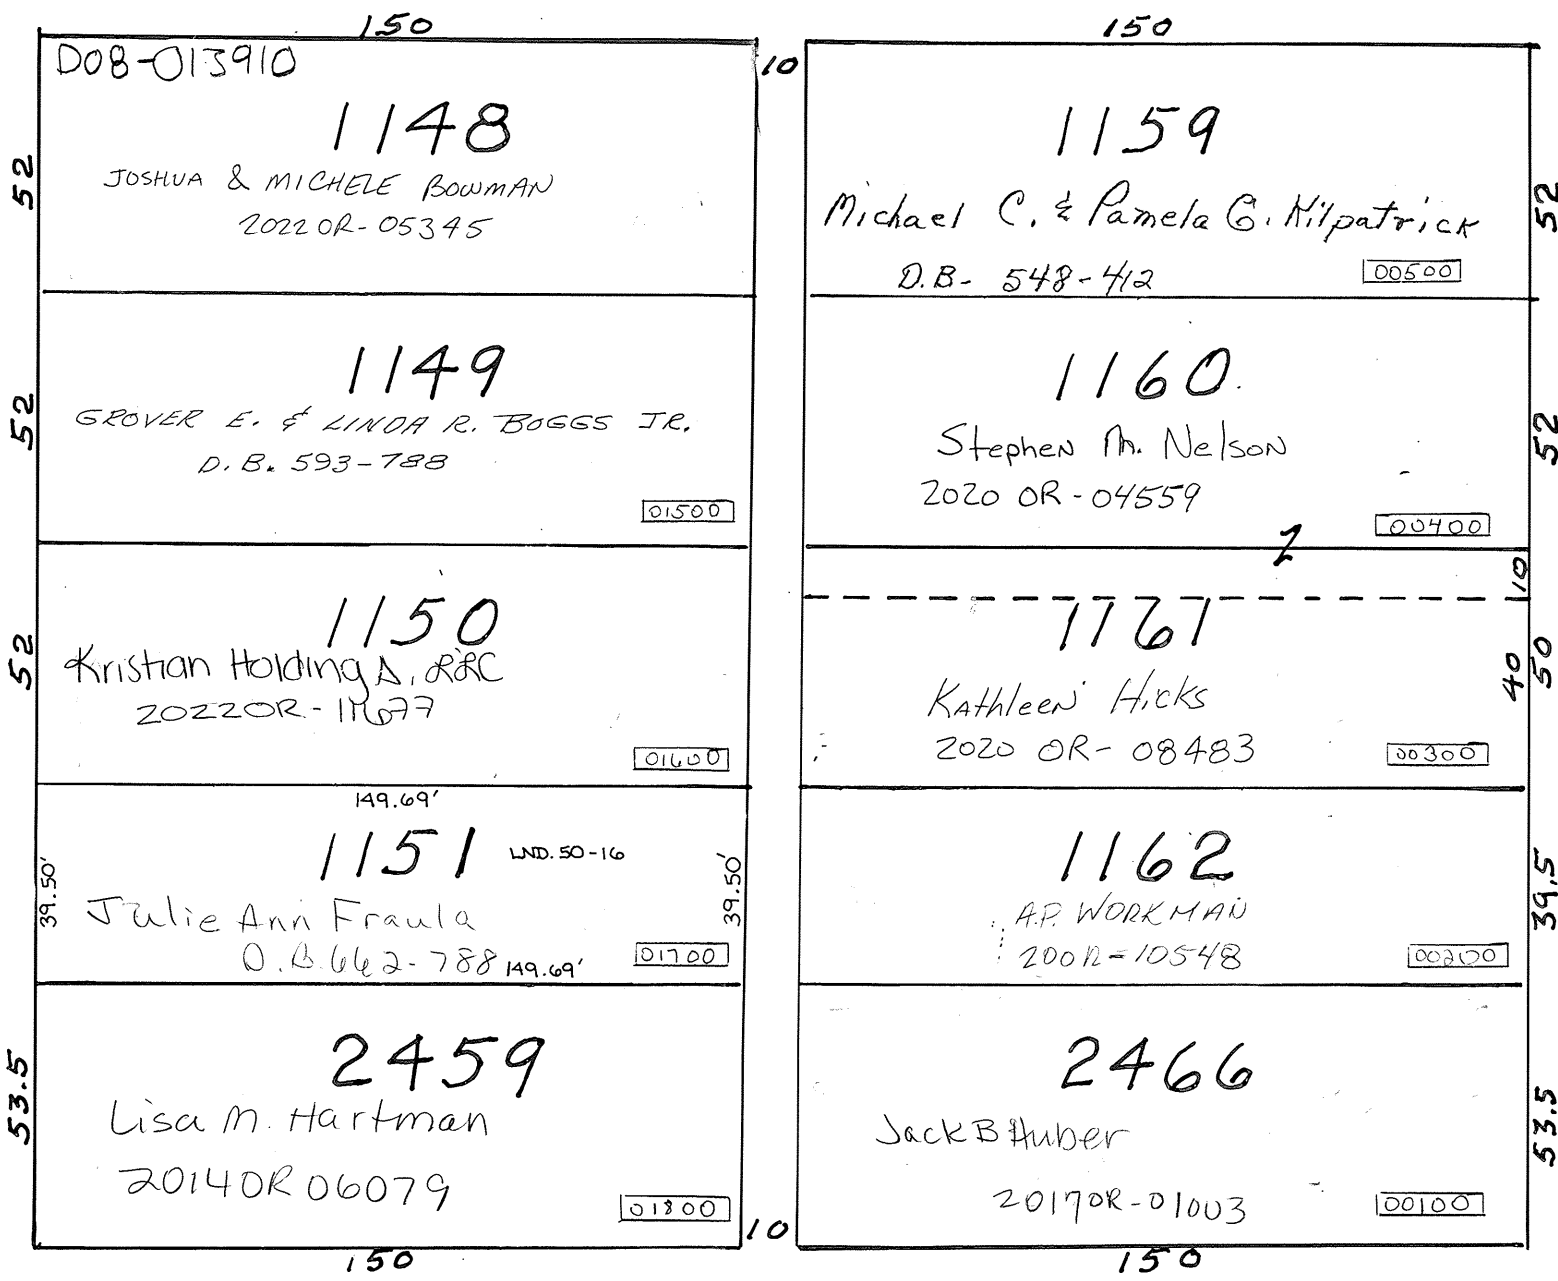 150
D08-013910
1148
JOSHUA & MICHELE BOWMAN
2022 OR-05345
52
1149
GROVER E. & LINDA R. BOGGS JR.
D.B. 593-788
01500
52
1150
Kristian Holdings, LLC
2022OR-11677
01600
52
149.69'
1151 LND. 50-16
39.50'
39.50'
Julie Ann Fraula
D.B. 662-788
149.69'
01700
2459
Lisa M. Hartman
2014OR06079
01800
53.5
150
10
10
150
1159
Michael C. & Pamela G. Kilpatrick
D.B- 548-412
00500
52
1160
Stephen M. Nelson
2020 OR-04559
00400
52
Z
10
1161
Kathleen Hicks
2020 OR-08483
00300
40
50
1162
A.P. WORKMAN
200R-10548
00200
39.5
2466
Jack B Huber
2017OR-01003
00100
53.5
150